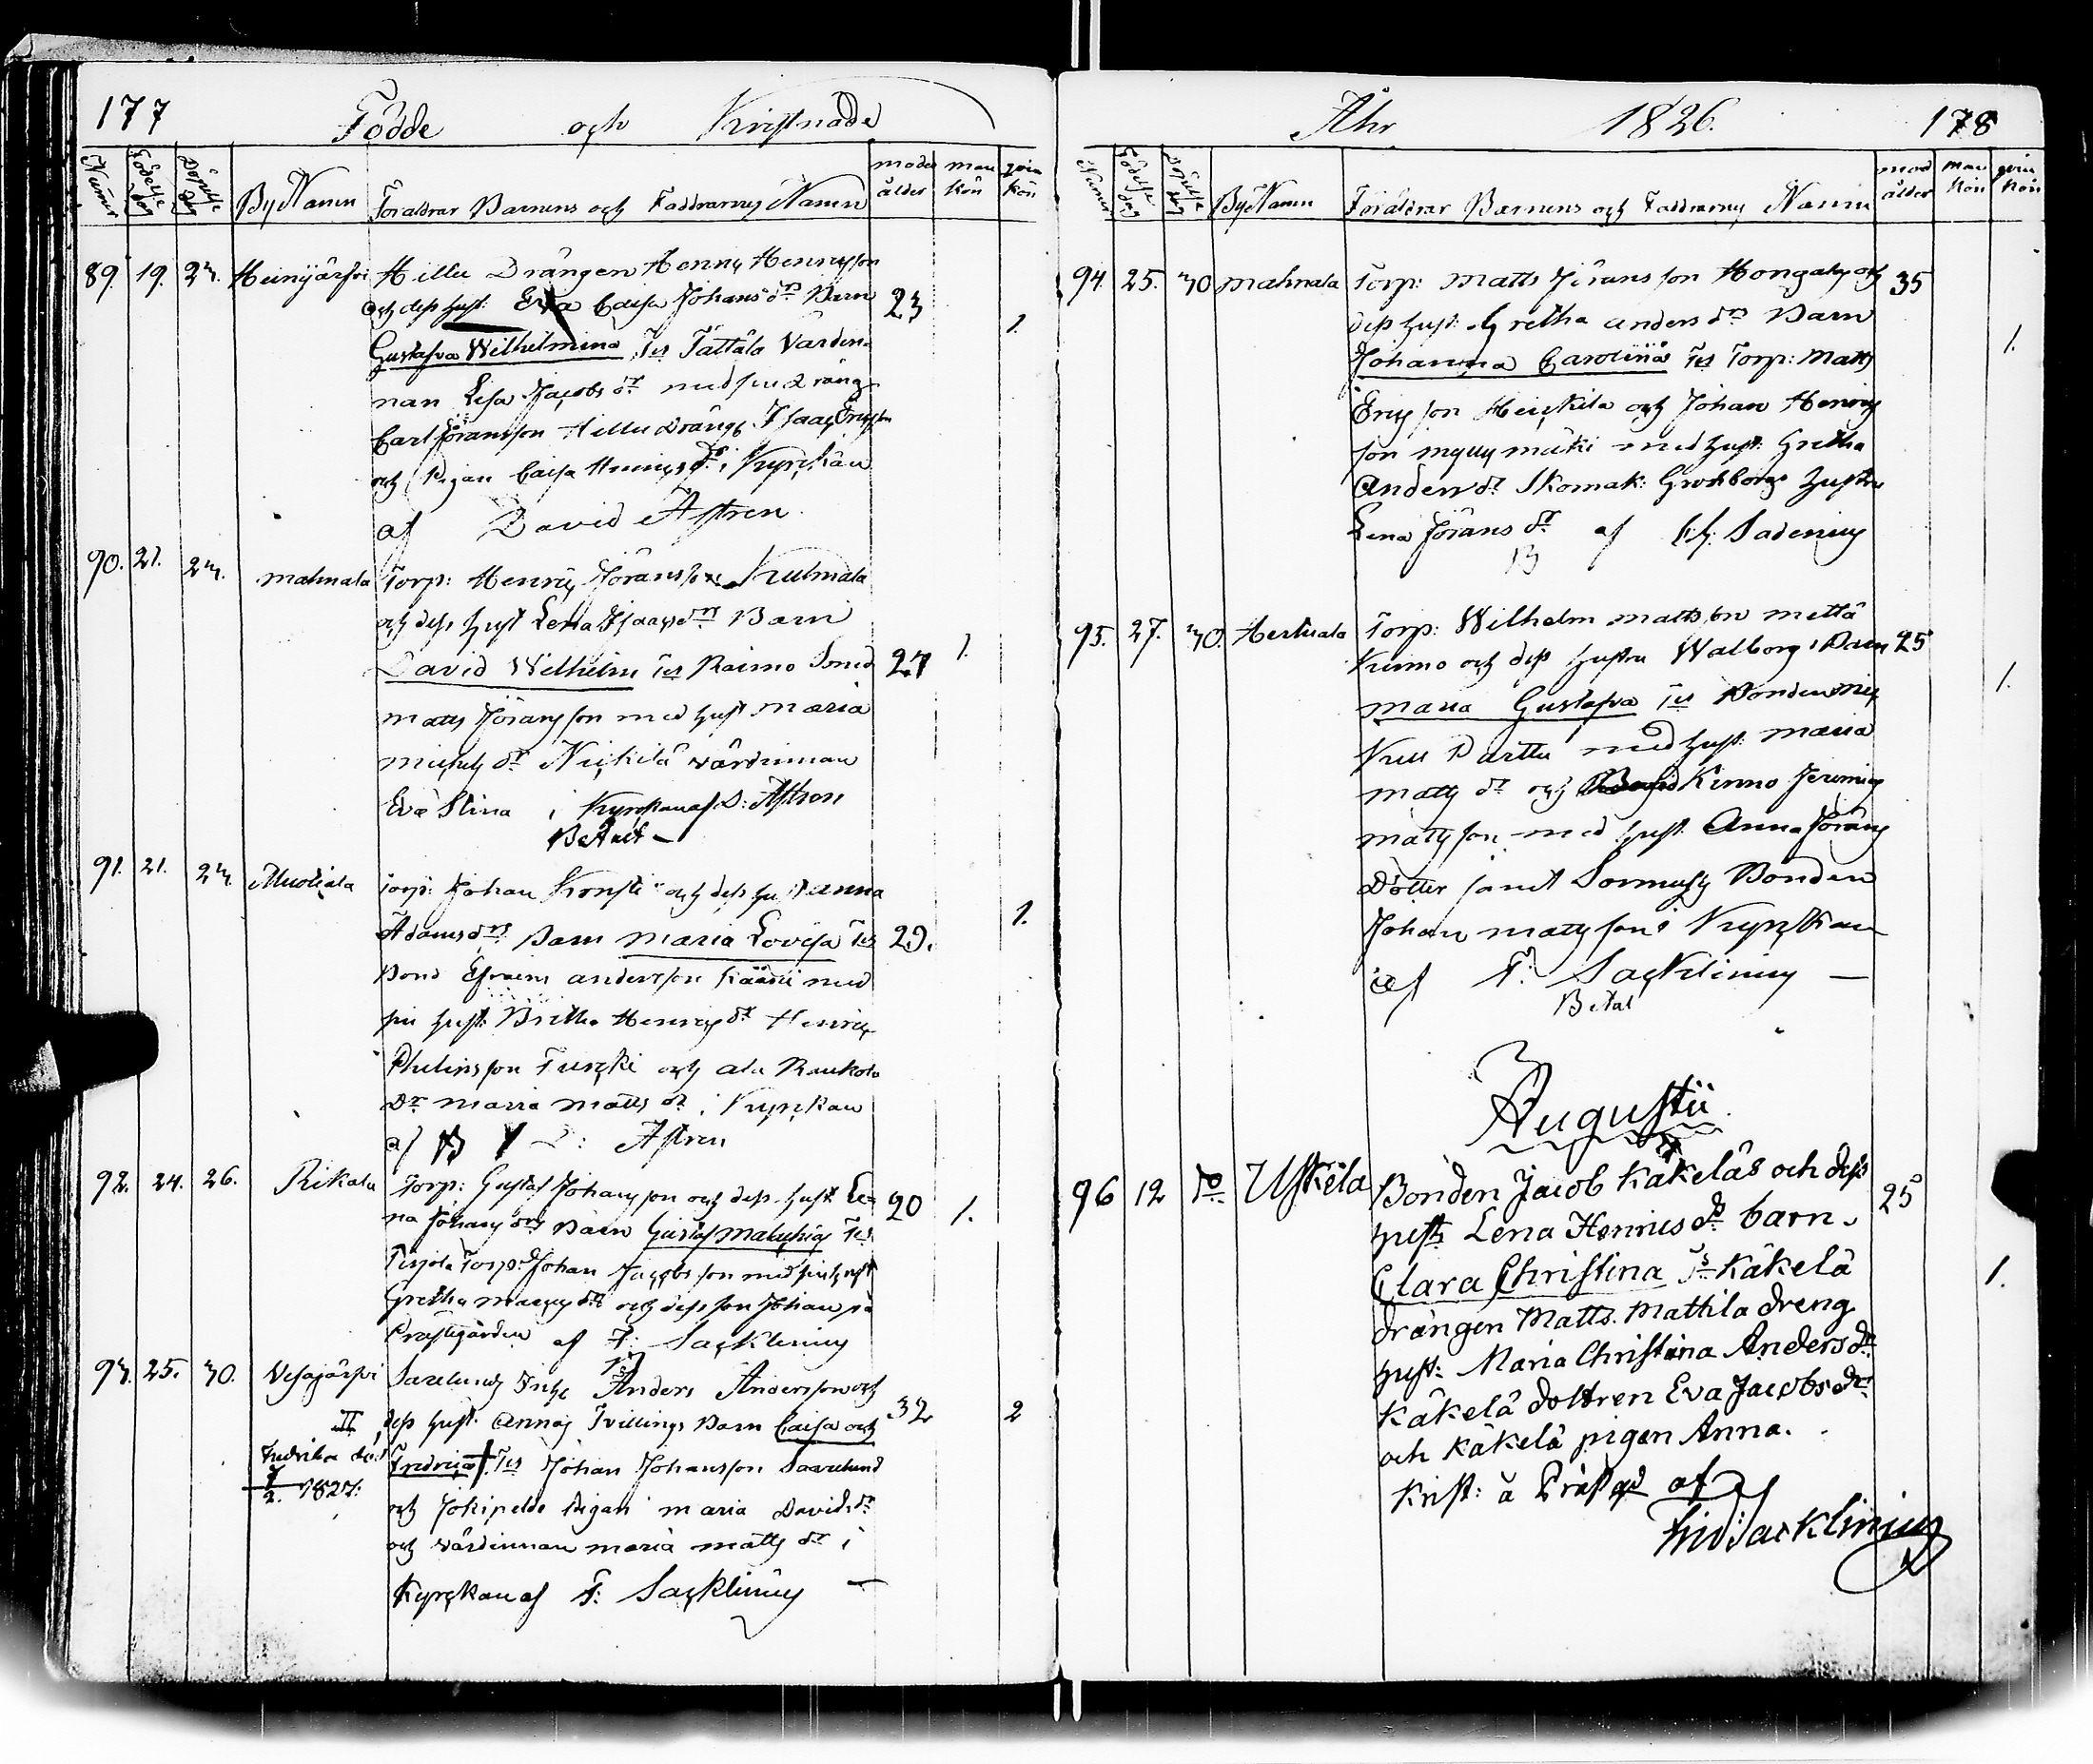 177
Födde och Kristnade
Numer Födelse dag Döpelse dag By Namn Föräldrar Barnens och Faddrarnes Namn moders ålder man kön qvin kön
89. 19. 23. Heinijärfvi Hillu Drängen Henric Henricsson
och dess hust: Eva Caisa Johans dr Barn 23 1.
Gustafva Wilhelmina Tes Tättälä Värdin-
nan Lisa Jacobs dr med sin dräng
Carl Göransson Hillu Dräng Isaac Ericsson
och Pigan Caisa Henrics dr i Kyrckan
af David Astren
90. 21. 23. mahnala Torp: Henric Jöransson Kulmala
och dess hust Lena Isaacs dr Barn
David Wilhelm Tes Raimo Smed 27 1.
matts Jöransson med hust maria
michels dr Nickilä värdinnan
Eva Stina i Kyrckan af D: Astren
Betalt —
91. 21. 23. Torp: Johan Konsti och dess hust anna
Adams dr Barn maria Lovisa Tes 29. 1.
Bond Efraim andersson med
sin hust: Britha Henrics dr Henric
och ala Raukola
Dr maria matts dr i Kyrckan
af B D: Astren
92. 24. 26. Rikala Torp: Gustaf Johansson och dess hust Le-
na Johans dr Barn Gustaf malachias Tes 20 1.
Torp: Johan Jacobsson med sin hust
Gretha och dess son Johan på
Prästegården af F: Sacklinius
93. 25. 30. Vesajärfvi Inhs Anders Andersson och
II dess hust: Annas Tvillings Barn Caisa och 32 2
Fredrika död Fredrica † Tes Johan Johansson Saarelund
7/2. 1827. och Jokipelde Pigan maria Davids dr
och värdinnan maria matts dr i
Kyrckan af F: Sacklinius —
Åhr 1826. 178
Numer Födelse dag Döpelse dag By Namn Föräldrar Barnens och Faddrarnes Namn mod ålder man kön qvin kön
94. 25. 30 mahnala Torp: Matts Jöransson Hongas och 35
dess hust: Gretha anders dr Barn
Johanna Carolina Tes Torp: Matts 1.
Ericsson Heickilä och Johan Henrics
son med hust: Gretha
Anders dr Skomak: Hustru
Lena Jörans dr af
B
95. 27. 30. Torp: Wilhelm mattsson
och dess hustru Walborgs Barn 25
maria Gustafva Tes Bonden 1.
med hust: maria
matts dr och Kinno Jeremias
mattsson med hust Anna Jörans
Dotter samt Bonden
Johan mattsson i Kyrckan
af F: Sacklinius —
Betal
Augustii
96 12 Do. Uskela Bonden Jacob Käkeläs och dess 25
hust: Lena Henrics dr barn.
Clara Christina Ts Käkelä 1.
drängen Matts. Mattila dreng
hust: Maria Christina Anders dr
Käkelä dottren Eva Jacobs dr
och Käkelä pigan Anna.
Krist: å Prästgd af
Frid Sacklinius